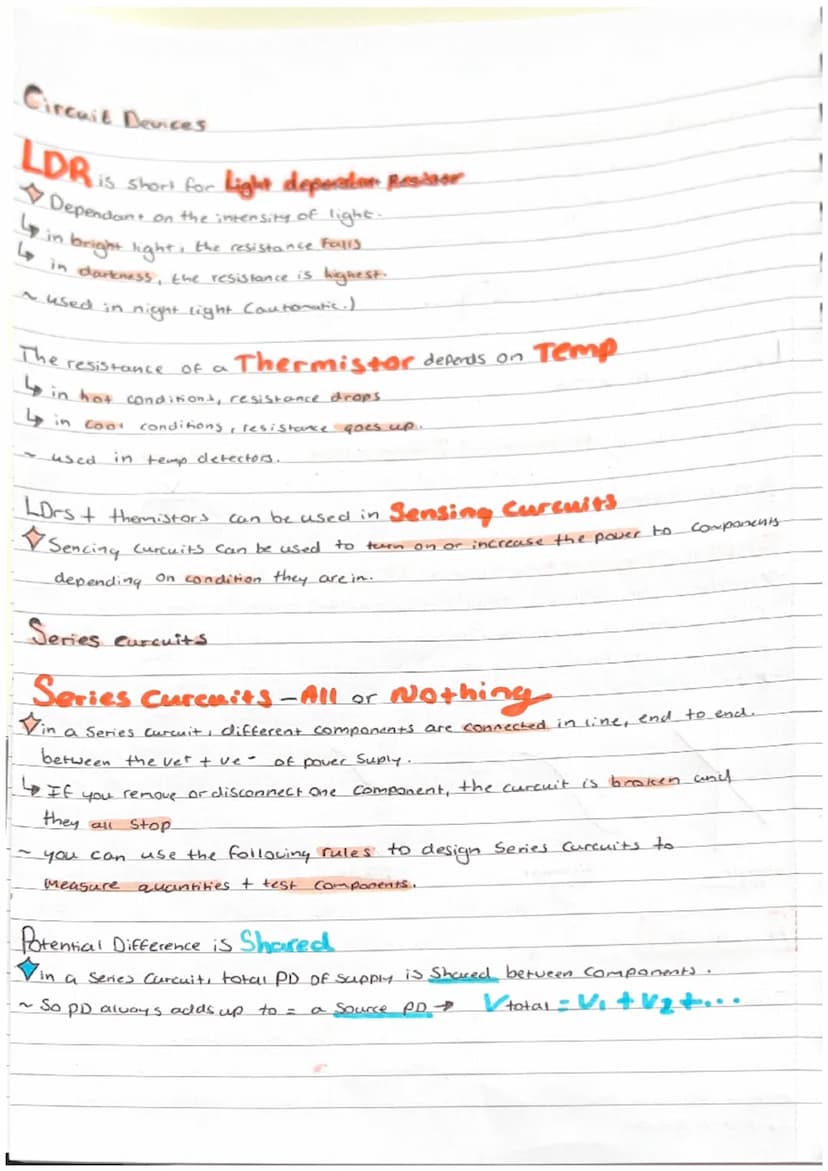 Circuit Devices
LDR is short for Light dependan Resistor
Dependant on the intensity of light.
↳ in bright light, the resistance Falls
↳ in darkness, the resistance is highest.
~ used in night light (automatic.)
The resistance of a Thermistor depends on Temp
↳ in hot conditions, resistance drops
↳ in cool conditions, resistance goes up.
~ used in temp detectors.
LDrs + themistors can be used in Sensing Curcuits
Sencing curcuits can be used to turn on or increase the power to components
depending on condition they are in.
Series curcuits
Series Curcuits - All or Nothing
in a series curcuit, different components are connected in line, end to end.
between the ve+ + ve- of power suply.
↳ If you remove or disconnect one component, the curcuit is broken and
they all stop
~ you can use the following rules to design series curcuits to
measure quantities + test components.
Potential Difference is Shared
in a series curcuit, total PD of supply is shared between components.
~ So PD always adds up to = a source PD → Vtotal = V1 + V2 + ...